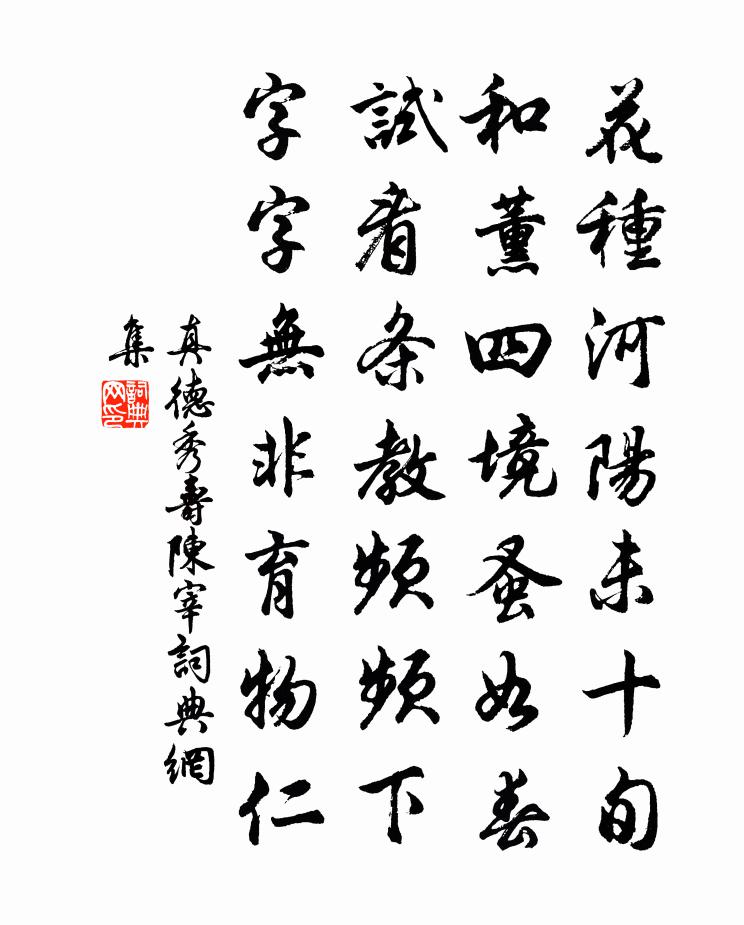 花種河陽未十旬
和薰四境蚤如春
試看条教頻頻下
字字無非育物仁
真德秀壽陳宰詞典網
集
詞典網印